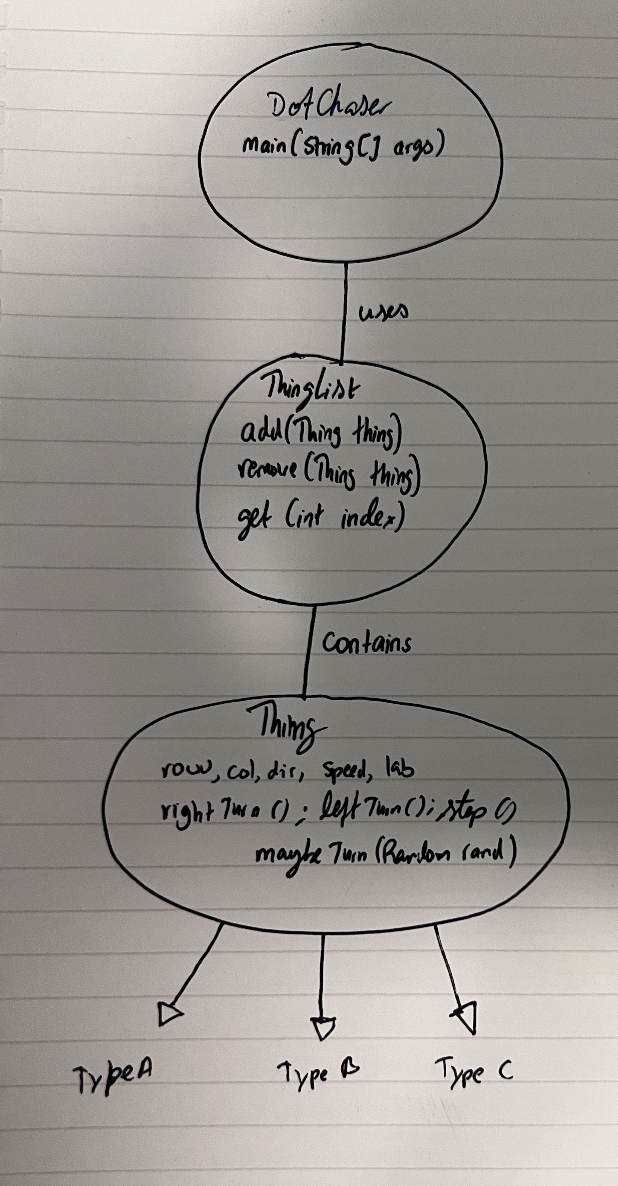 DotChaser
main(String[] args)
uses
ThingList
add(Thing thing)
remove(Thing thing)
get (int index)
Contains
Thing
row, col, dir, speed, lab
rightTurn(); leftTurn(); step()
maybeTurn(Random rand)
TypeA
Type B
Type C